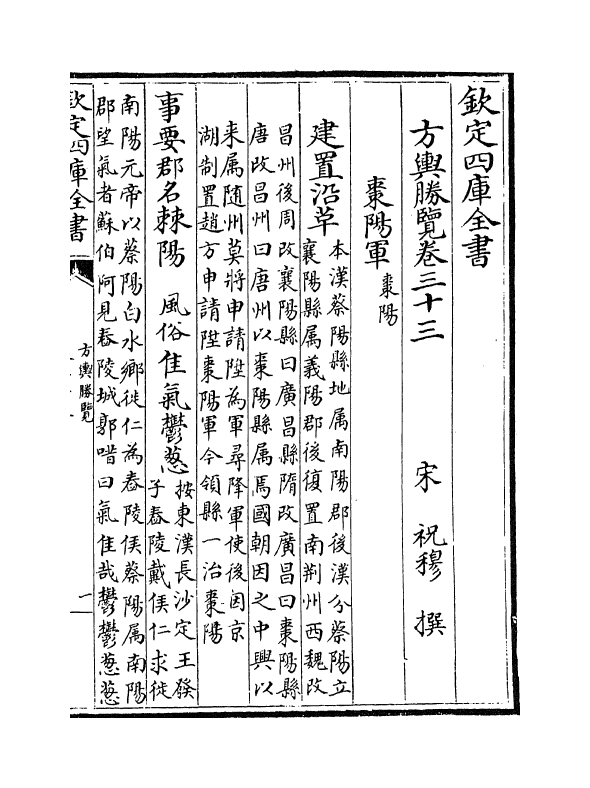 欽定四庫全書
方輿勝覽卷三十三
宋 祝穆 撰
棗陽軍棗陽
建置沿革
本漢蔡陽縣地属南陽郡後漢分蔡陽立
襄陽縣属義陽郡後復置南荆州西魏改
昌州後周改襄陽縣曰廣昌縣隋改廣昌曰棗陽縣
唐改昌州曰唐州以棗陽縣属焉國朝因之中興以
来属随州莫將申請陞為軍尋降軍使後因京
湖制置趙方申請陞棗陽軍今領縣一治棗陽
事要郡名棘陽 風俗佳氣鬱葱
按東漢長沙定王發
子舂陵戴侯仁求徙
南陽元帝以蔡陽白水鄉徙仁為舂陵侯蔡陽属南陽
郡望氣者蘇伯阿見舂陵城郭喈曰氣佳哉鬱鬱葱葱
欽定四庫全書
方輿勝覽
一